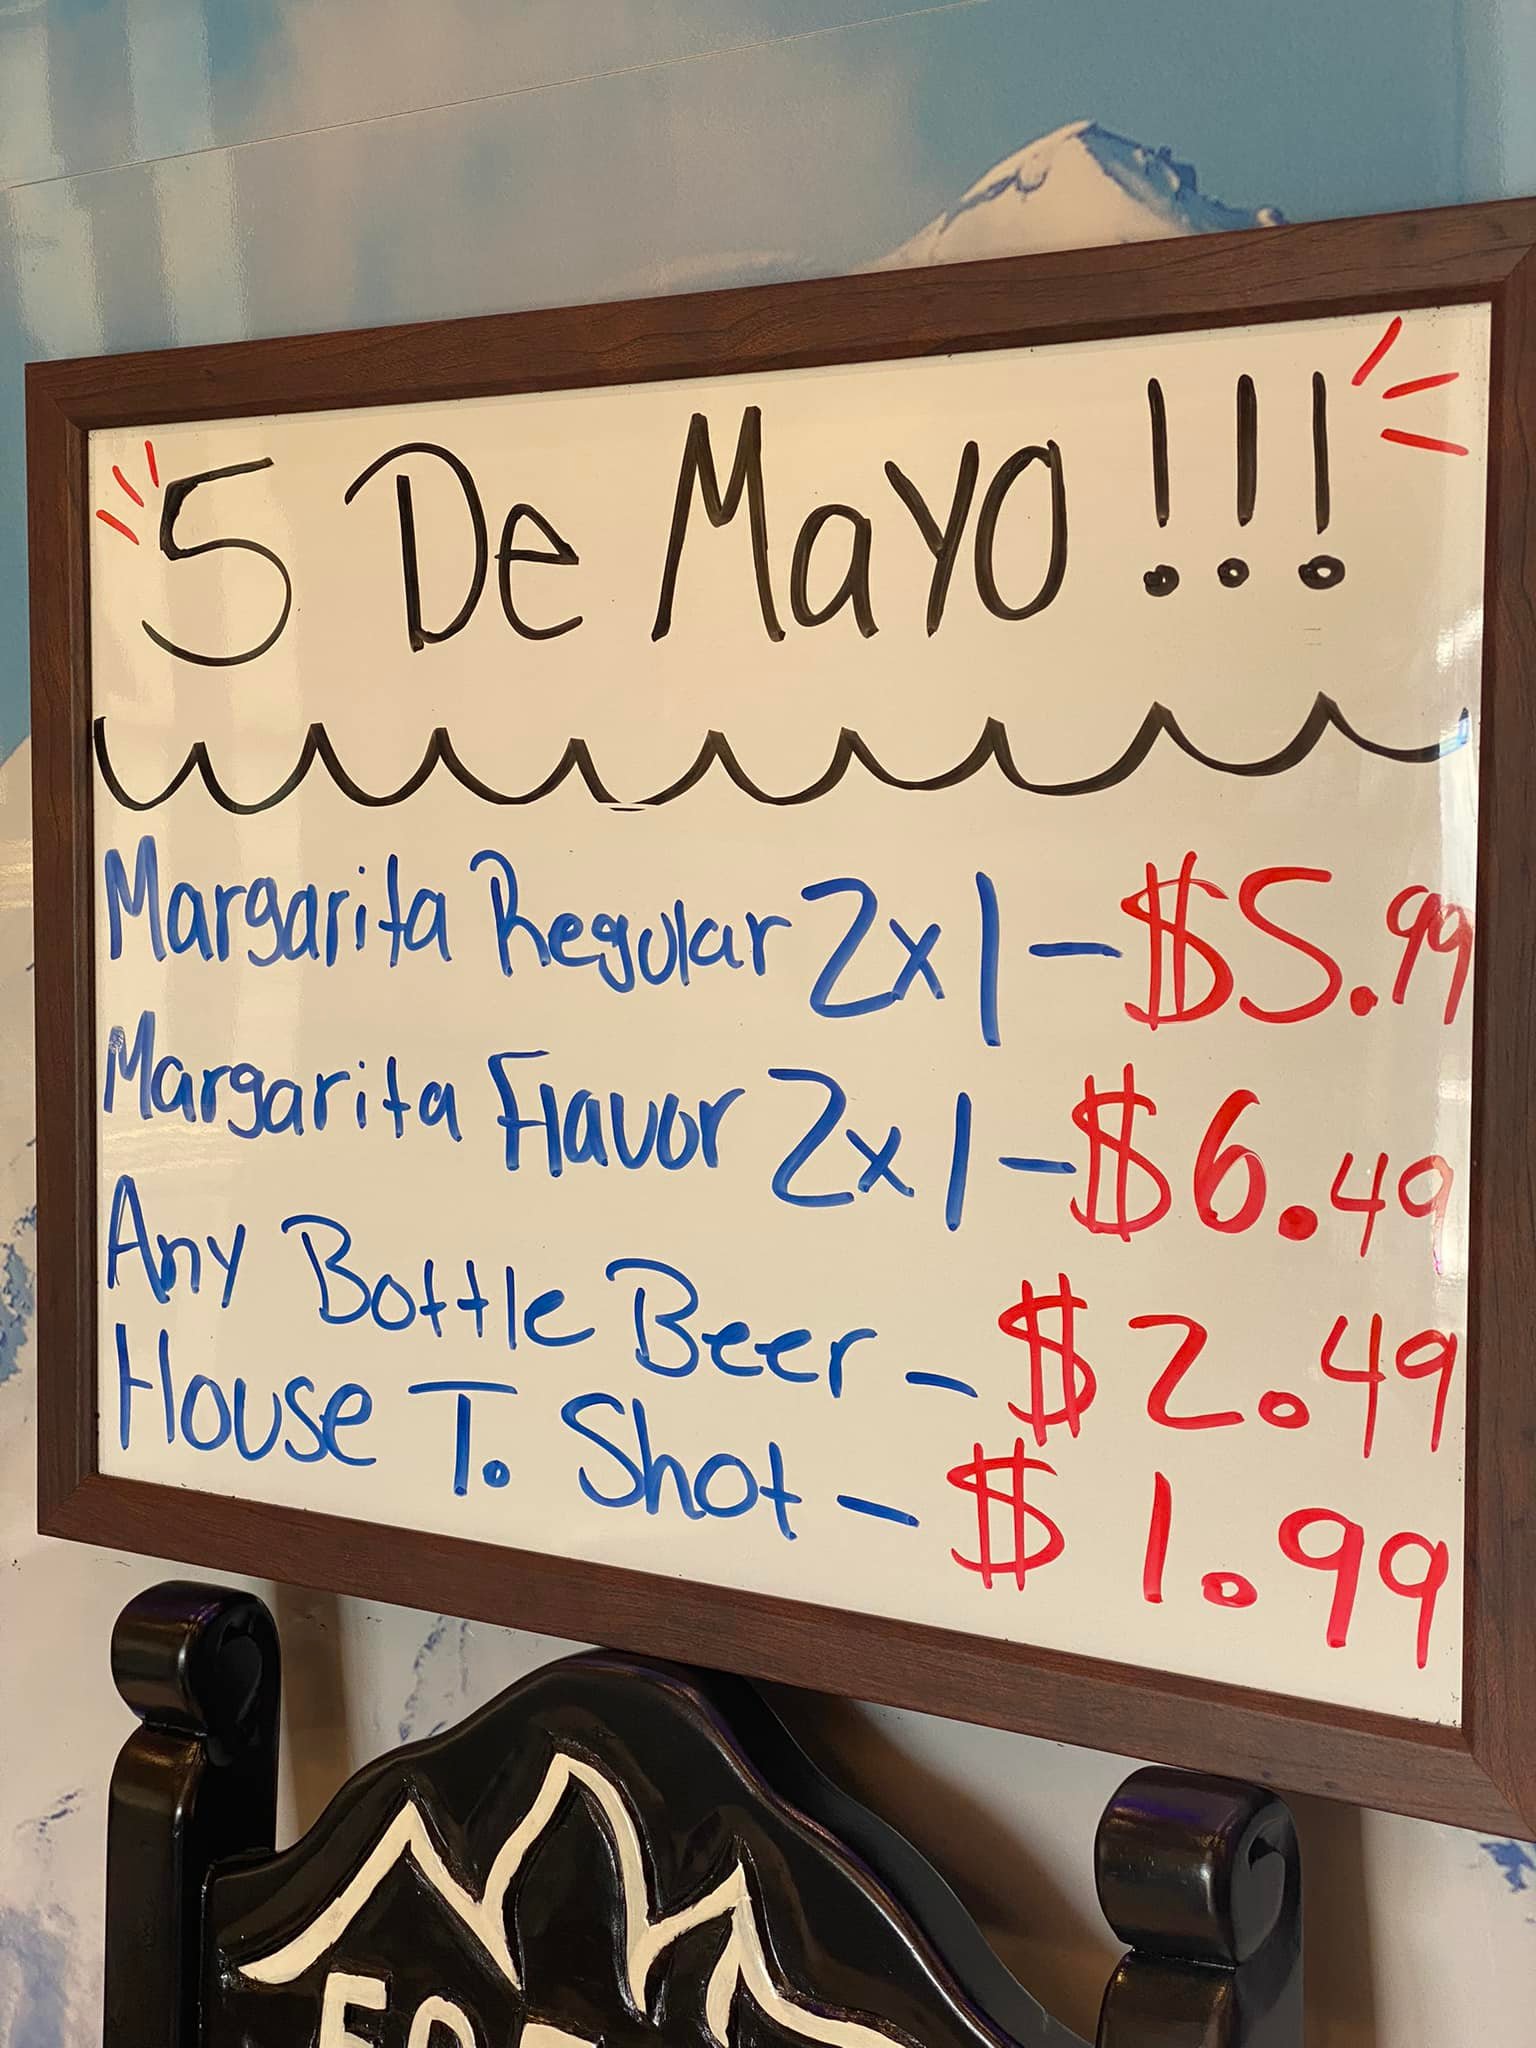 5 De Mayo!!!
Margarita Regular 2x1 - $5.99
Margarita Flavor 2x1 - $6.49
Any Bottle Beer - $2.49
House T. Shot - $1.99